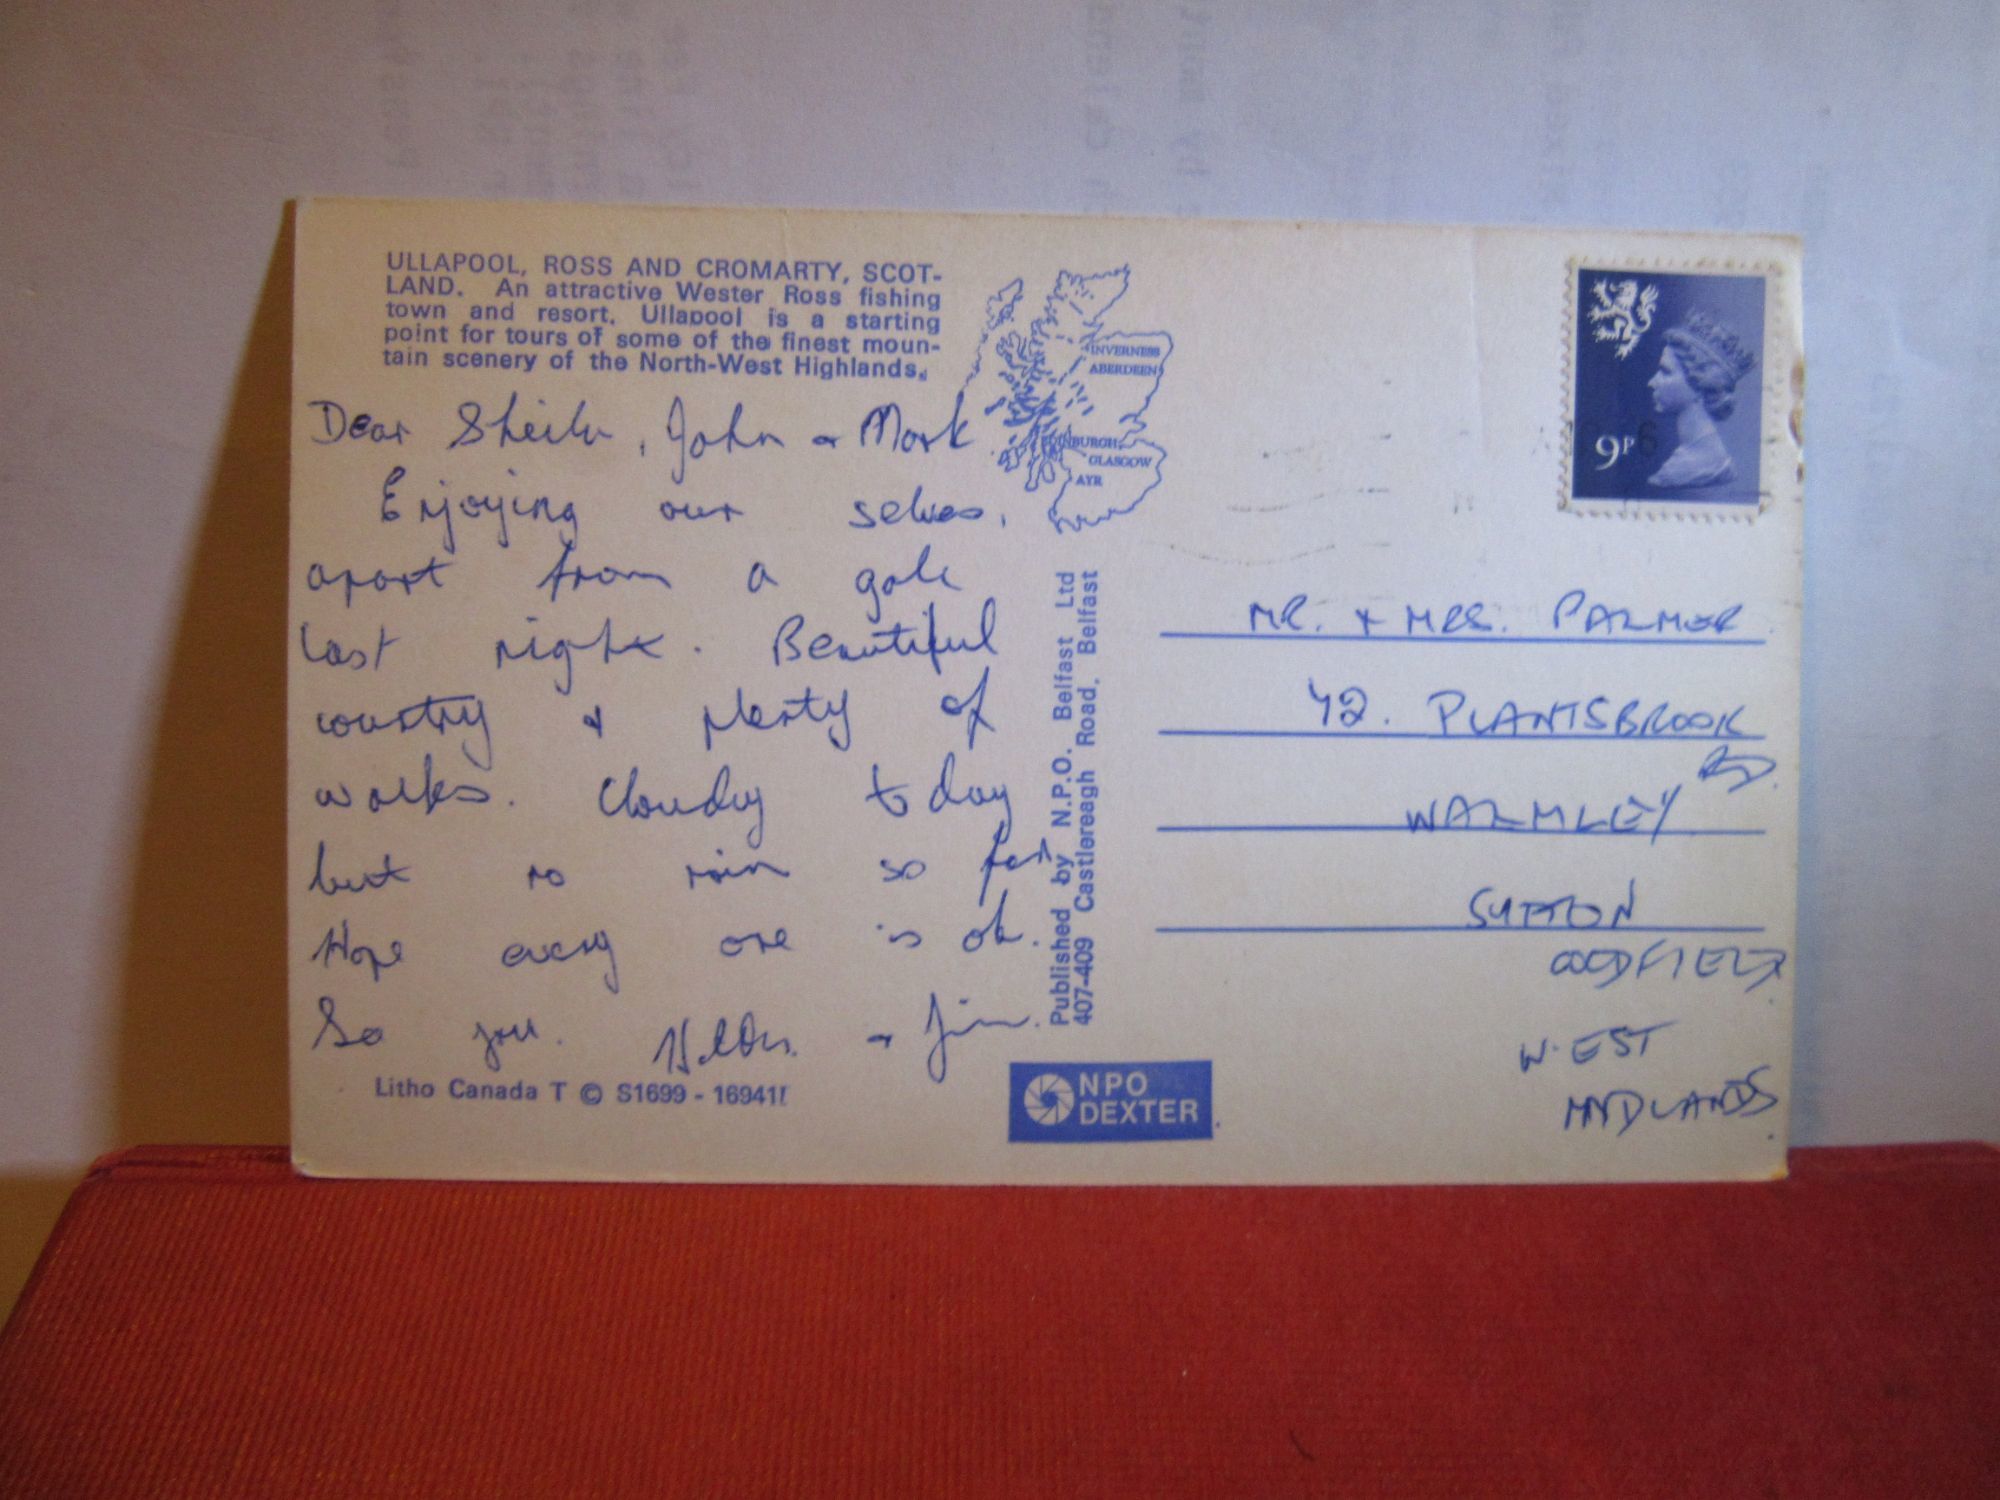 ULLAPOOL, ROSS AND CROMARTY, SCOT-
LAND. An attractive Wester Ross fishing
town and resort. Ullapool is a starting
point for tours of some of the finest moun-
tain scenery of the North-West Highlands.
INVERNESS
ABERDEEN
EDINBURGH
GLASGOW
AYR
Dear Sheila, John & Mark
Enjoying our selves,
apart from a gale
last night. Beautiful
country & plenty of
walks. Cloudy to day
but no rain so far
Hope every one is ok.
So you. & Jim.
Litho Canada T © S1699 - 16941
Published by N.P.O. Belfast Ltd
407-409 Castlereagh Road, Belfast
NPO
DEXTER
9P
MR. & MRS. PALMER
42. PLANTSBROOK
RD
WALMLEY
SUTTON
COLDFIELD
WEST
MIDLANDS